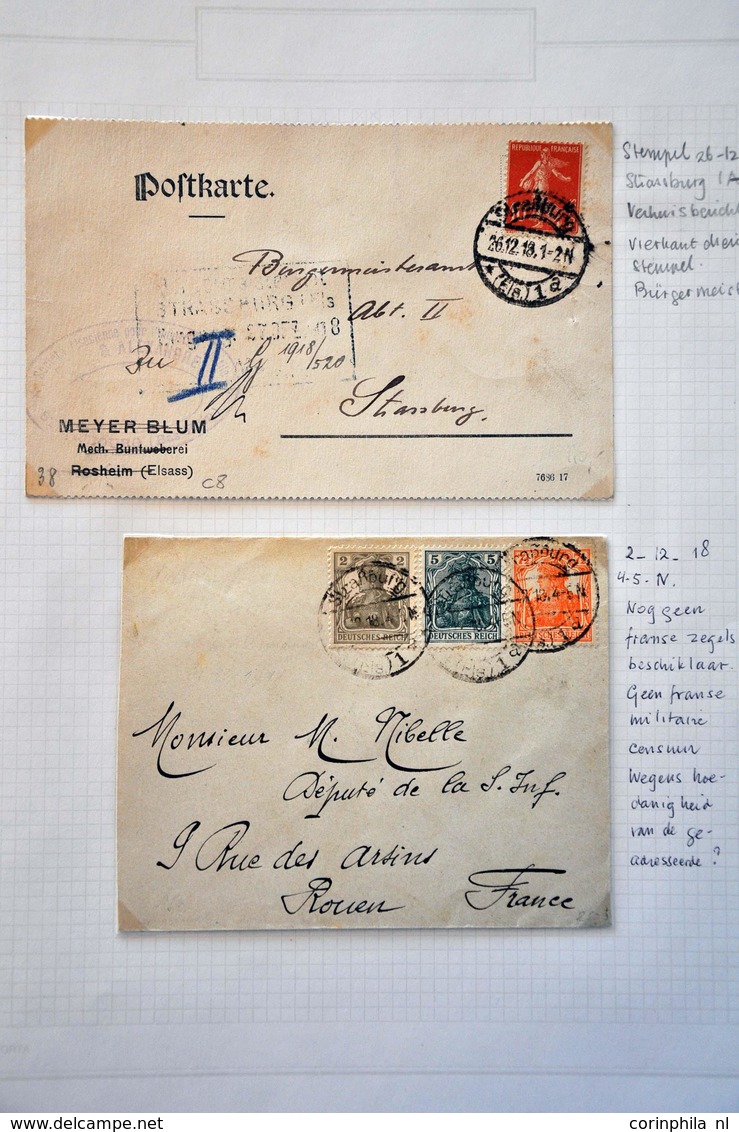 Postkarte.
REPUBLIQUE FRANÇAISE
Straßburg
26.12.18.1-2N
(Els) 1a
Bürgermeisteramt
Abt. II
STRASSBURG i Els
27.DEZ.1918
Zu II 1918/520
Strassburg.
MEYER BLUM
Mech. Buntweberei
Rosheim (Elsass)
38
C8
7686 17
Stempel 26-12
Strassburg 1A
Verhuisbericht
vierkant
stempel
Bürgermeist
2 2
DEUTSCHES REICH
5 5
DEUTSCHES REICH
Straßburg
1a
2-12-18
4-5-N.
Nog geen
franse zegels
beschikbaar.
Geen franse
militaire
censuur
wegens hoe-
danigheid
van de ge-
adresseerde?
Monsieur M. Nibelle
Député de la S. Inf.
9 Rue des Arsins
Rouen France
corinphila nl